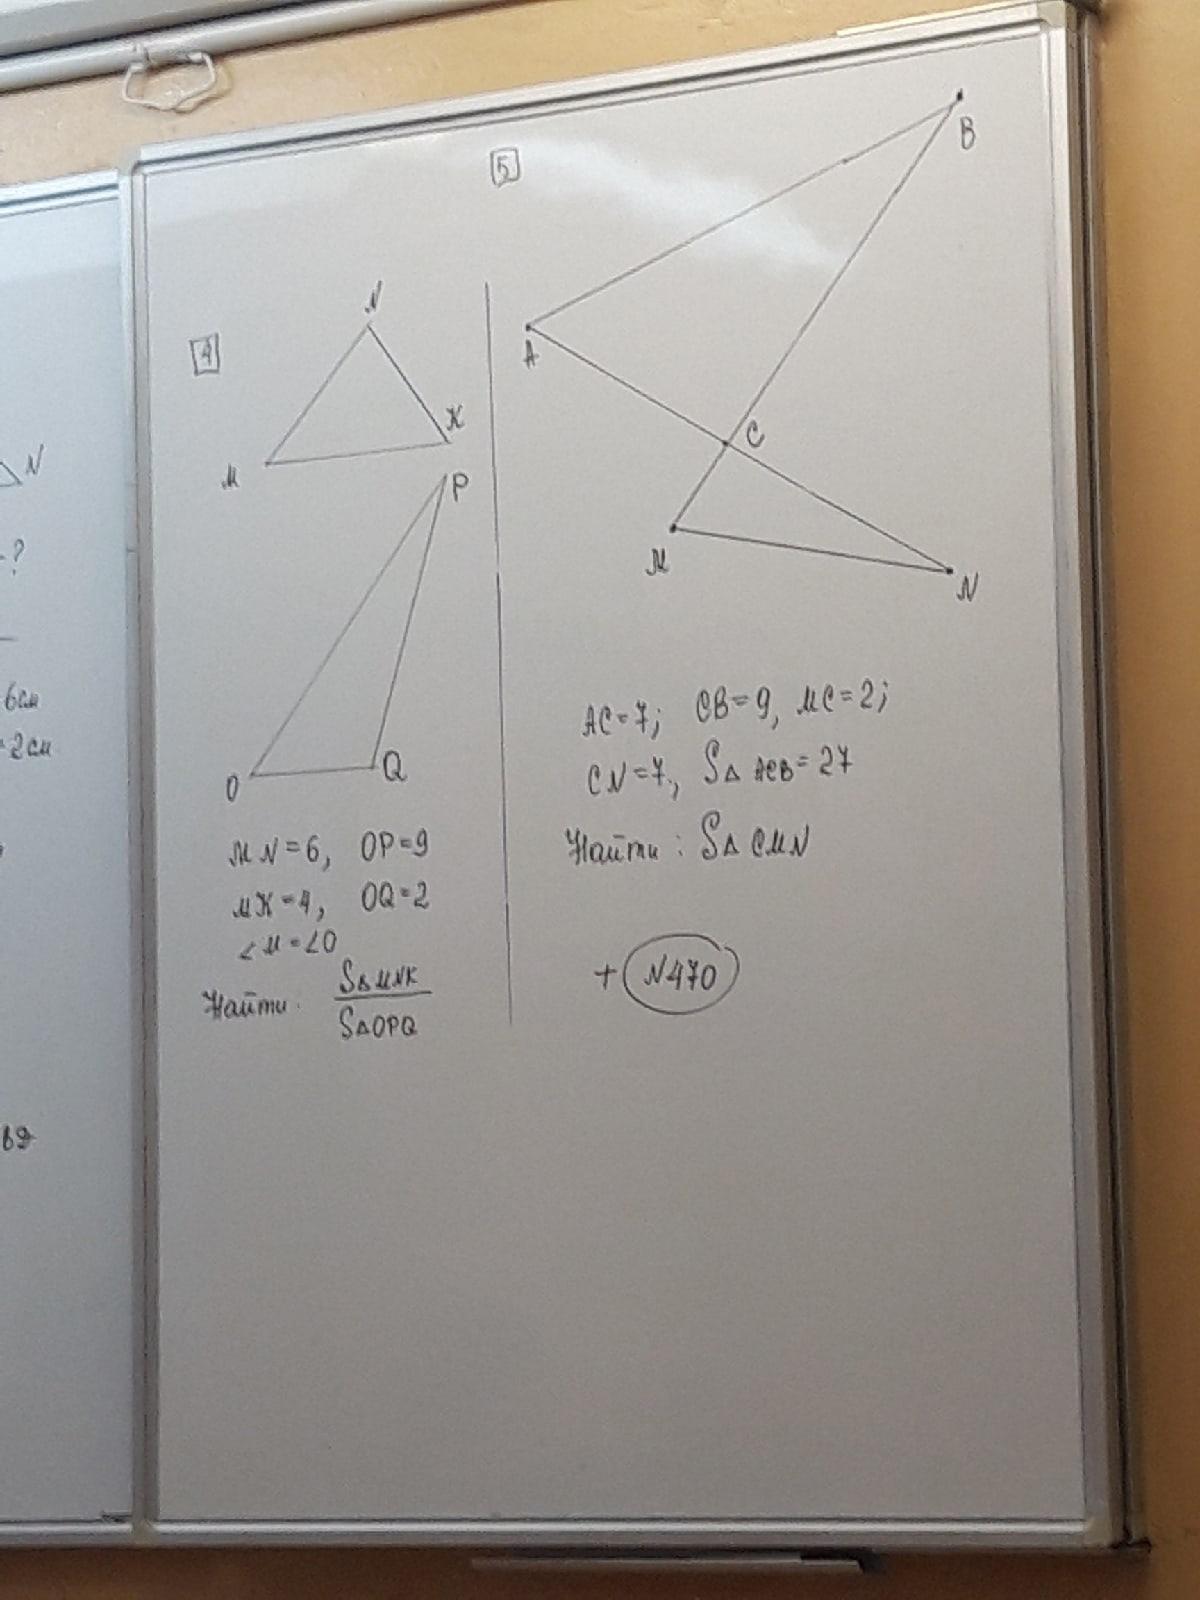 N
- ?
6см
2см
4
N
K
M
P
O
Q
MN=6, OP=9
MK=4, OQ=2
∠M=∠O
Найти: S△MNK
S△OPQ
5
B
A
C
M
N
AC=7; CB=9, MC=2;
CN=7, S△ACB=27
Найти: S△CMN
+ N470